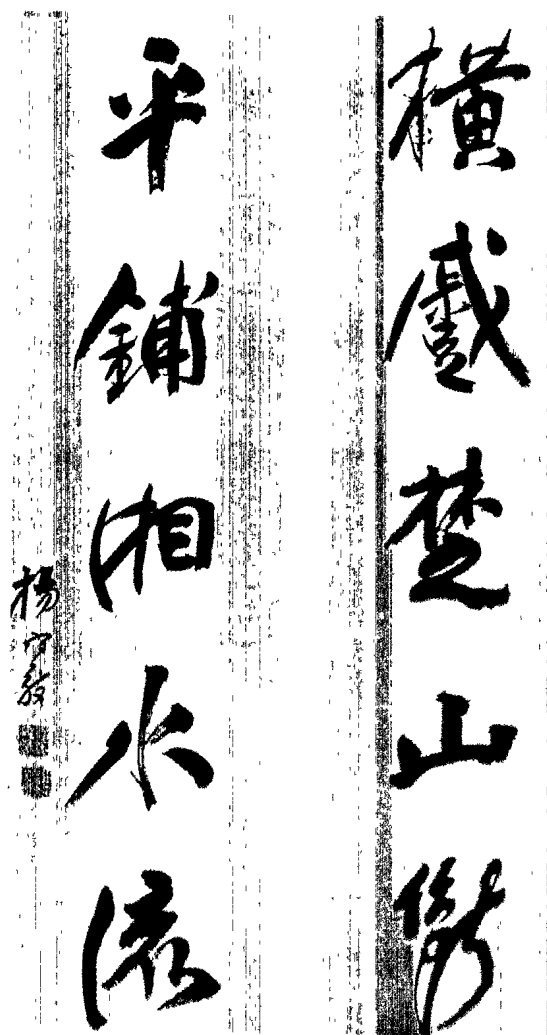 橫戲楚山
平鋪湘水流
楊守敬